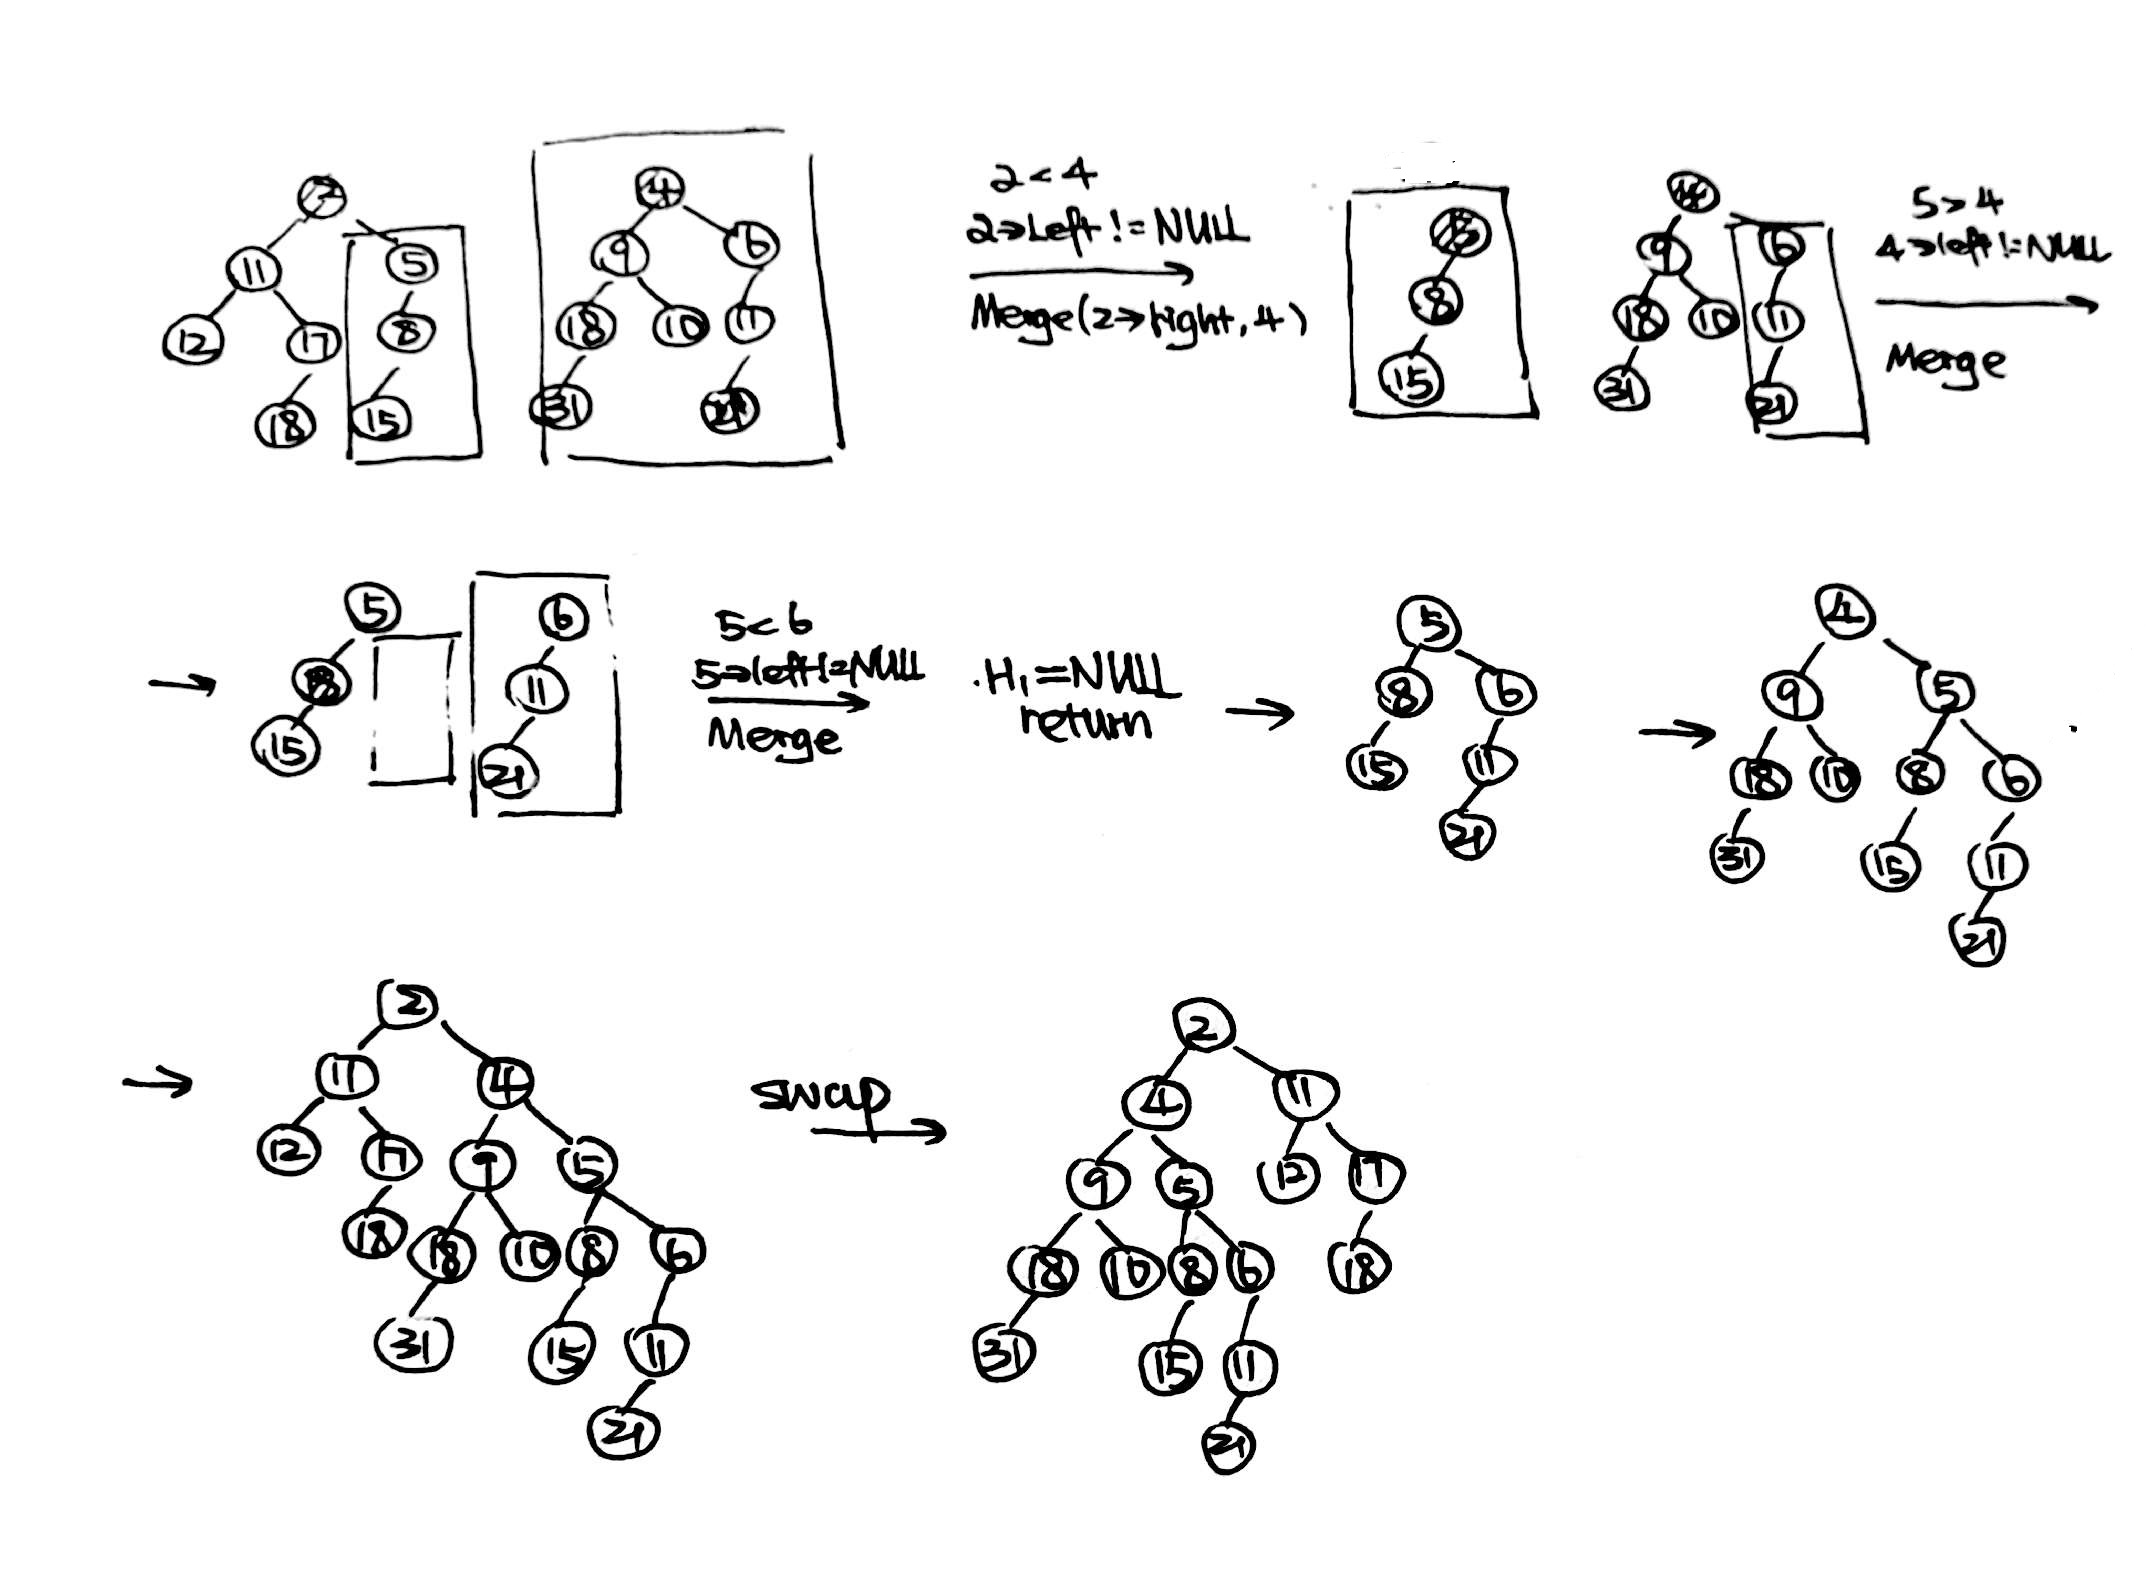 2 4
11 5 9 6
12 17 8 18 10 11
18 15 31 21
2<4
2→Left!=NULL
Merge(2→right,4)
5 4
8 9 6
15 18 10 11
31 21
5>4
4→left!=NULL
Merge
→ 5 6
8 11
15 21
5<6
5→left!=NULL
Merge
H₁=NULL
return
→ 5
8 6
15 11
21
→ 4
9 5
18 10 8 6
31 15 11
21
→ 2
11 4
12 17 9 5
18 18 10 8 6
31 15 11
21
swap
→
2
4 11
9 5 12 17
18 10 8 6 18
31 15 11
21